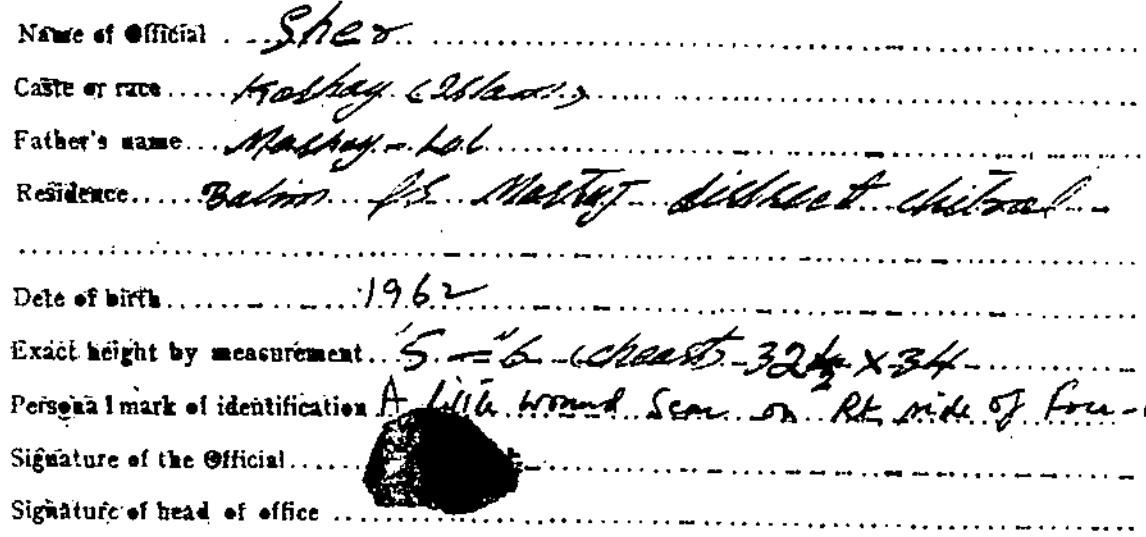 Name of Official Sher
Caste or race Koshay (Islam)
Father's name Mashay - Lal
Residence Balim P.S Mastuj district chitral
Date of birth 1962
Exact height by measurement '5 - "6 (cheast) 32½ x 34
Personal mark of identification A little wound Scar on Rt side of fore-
Signature of the Official
Signature of head of office